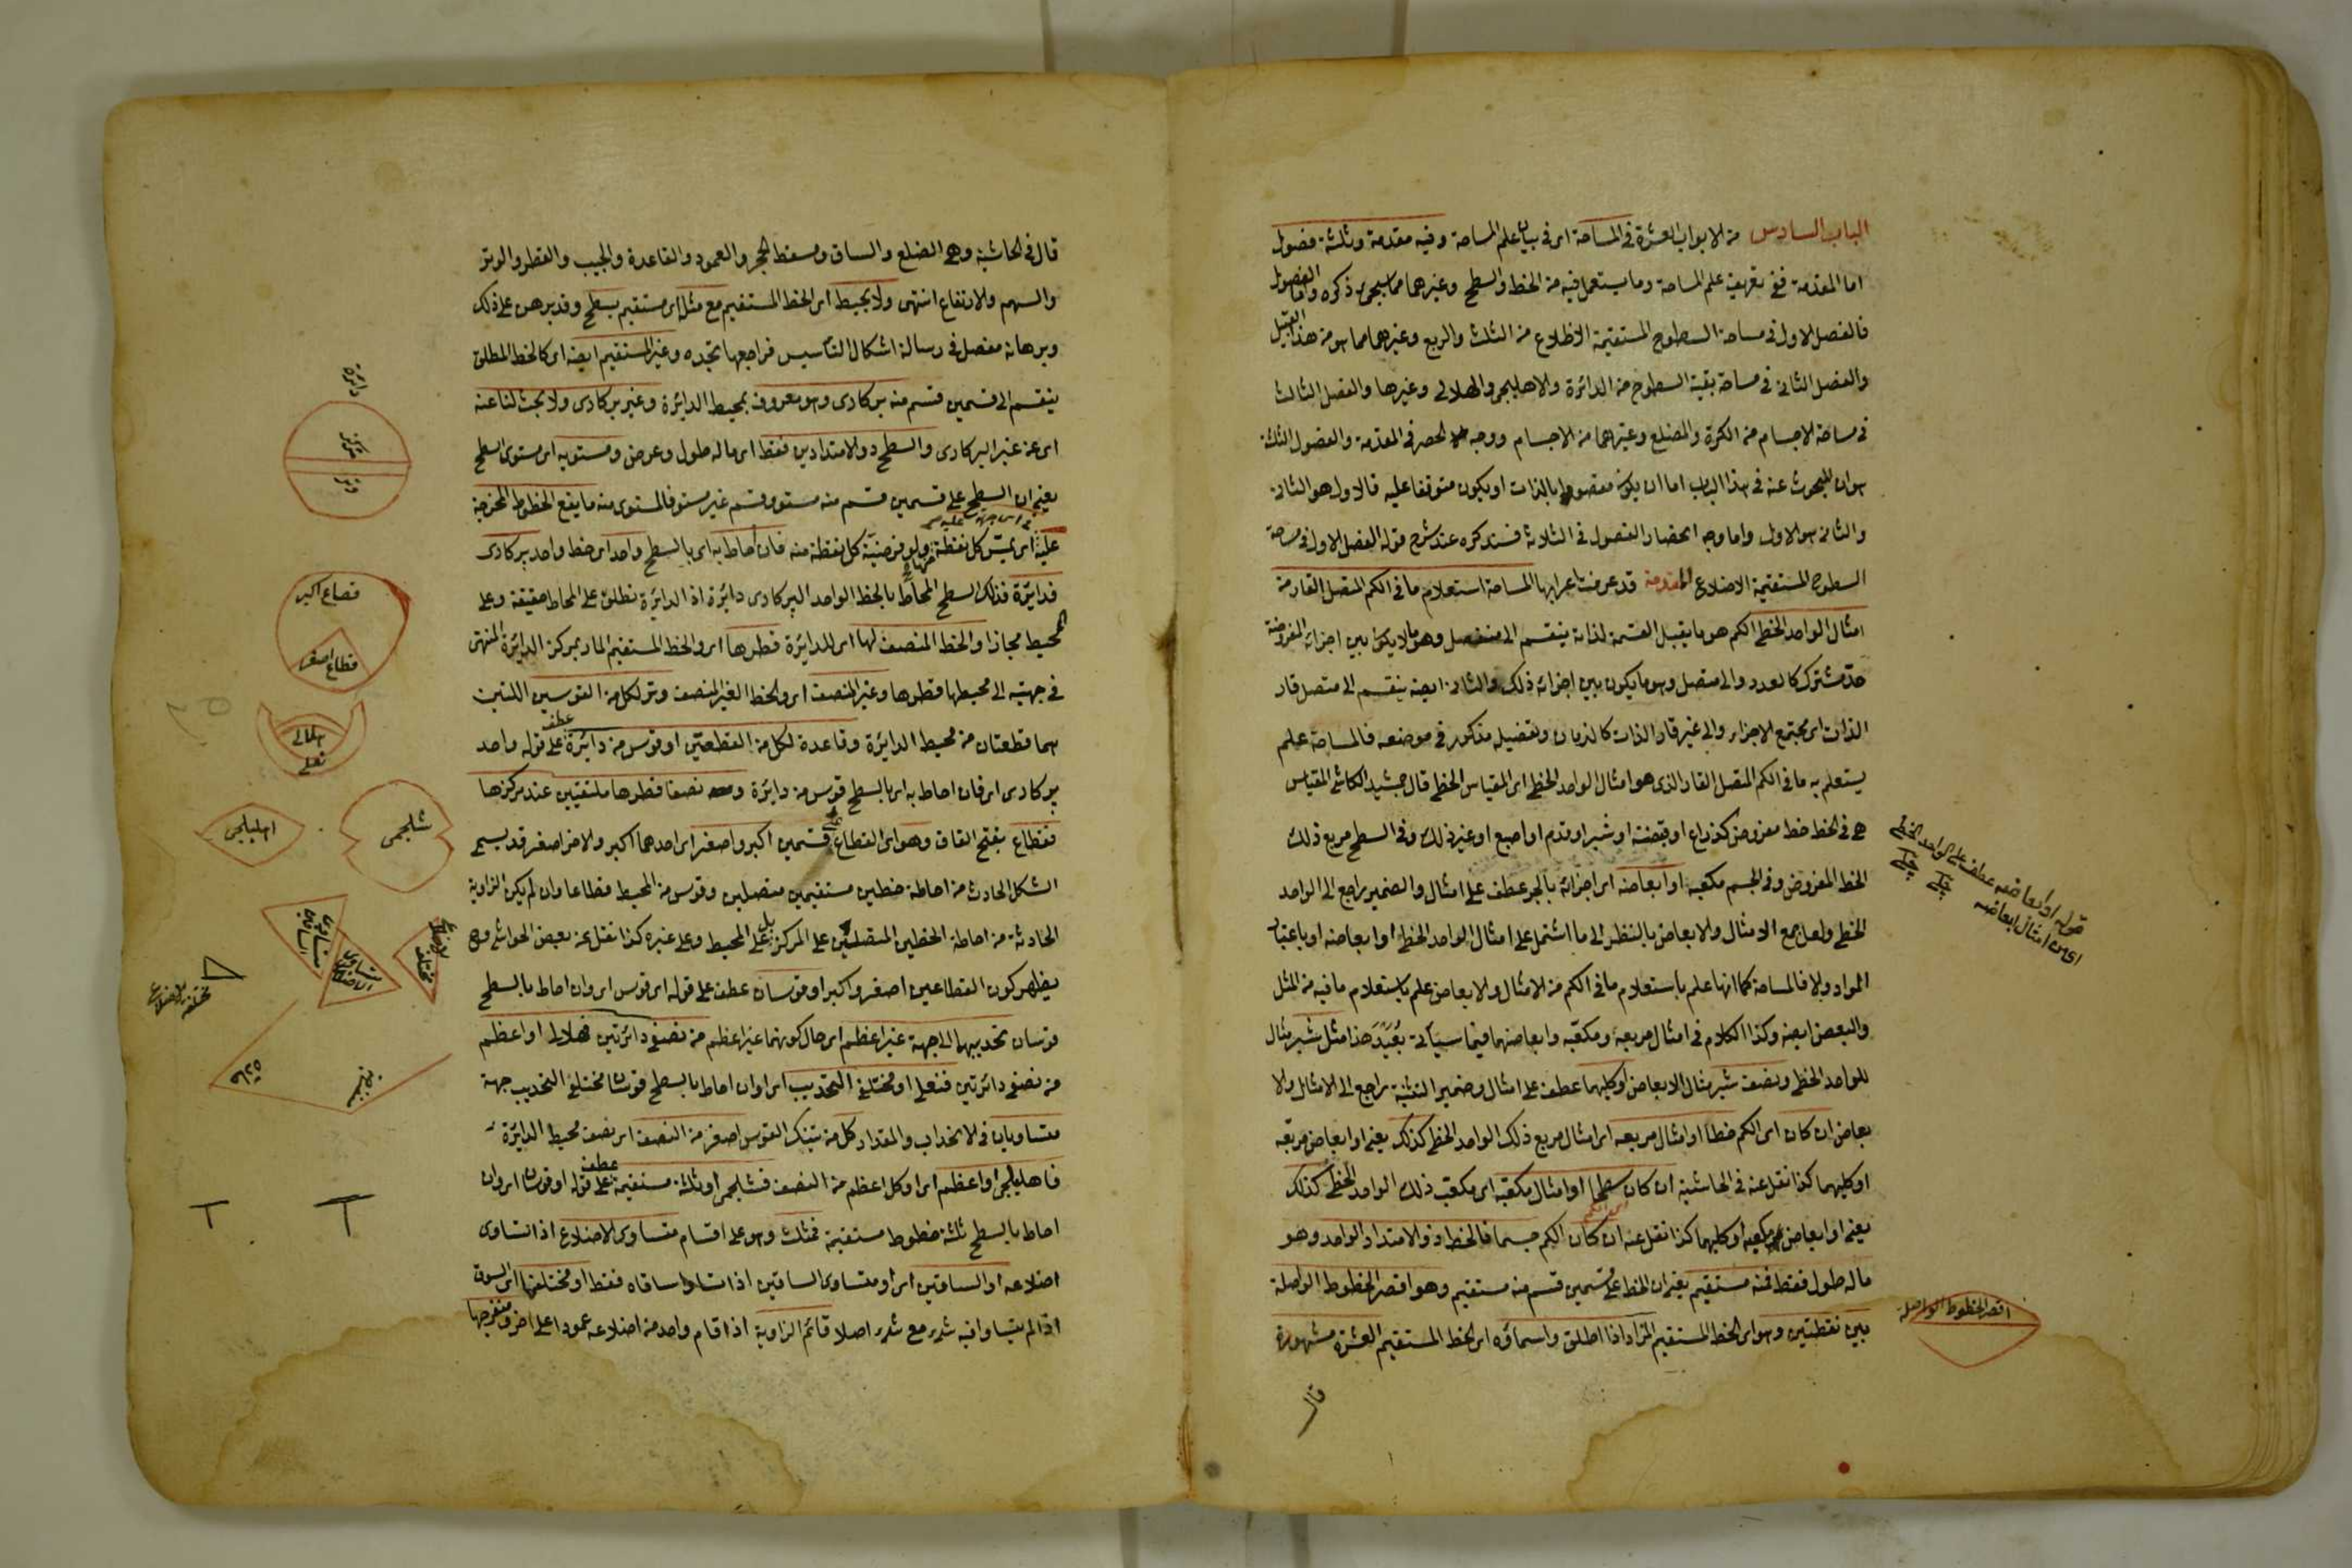 الباب السادس من الابواب العشرة فى المساحة اى فى بيان علم المساحة وفيه مقدمة وثلثة فصول
اما المقدمة ففى تعريف علم المساحة وما يستعمل فيه من الخط والسطح وغيرهما مما سيجئ ذكره واما الفصول
فالفصل الاول فى مساحة السطوح المستقيمة الاظلاع من الثلث والربع وغيرهما مما هو من هذا القبيل
والفصل الثانى فى مساحة بقية السطوح من الدائرة والاهليلجى والهلالى وغيرها والفصل الثالث
فى مساحة الاجسام من الكرة والمضلع وغيرهما من الاجسام ووجه الحصر فى المقدمة والفصول الثلثة
هو ان المبحوث عنه فى هذا الباب اما ان يكون مقصودا بالذات او يكون متوقفا عليه فالاول هو الثانى
والثانى هو الاول واما وجه انحصار الفصول فى الثلاثة فسنذكره عند شرح قوله الفصل الاول فى مساحة
السطوح المستقيمة الاضلاع المقدمة قد عرفت اعرابها المساحة استعلام ما فى الكم المتصل القار من
امثال الواحد الخطى الكم هو ما يقبل القسمة لذاته ينقسم الى منفصل وهو ما لا يكون بين اجزائه المفروضة
حد مشترك كالعدد والى متصل وهو ما يكون بين اجزائه ذلك والثانى ايضا ينقسم الى متصل قار
الذات اى مجتمع الاجزاء والى غير قار الذات كالزمان وتفصيله مذكور فى موضعه فالمساحة علم
يستعلم به ما فى الكم المتصل القار الذى هو امثال الواحد الخطى اى المقياس الخطى قال جمشيد الكاشى المقياس
هى فى الخط خط مفروض كذراع او قبضة او شبر او قدم او اصبع او غير ذلك وفى السطح مربع ذلك
الخط المفروض وفى الجسم مكعبه او ابعاضه اى اجزائه بالجر عطف على امثال والضمير راجع الى الواحد
الخطى ولعل جمع الامثال والابعاض بالنظر الى ما اشتمل على امثال الواحد الخطى او ابعاضه او باعتبار
المواد والا فالمساحة كما انها علم باستعلام ما فى الكم من الامثال والابعاض علم باستعلام ما فيه من المثل
والبعض ايضا وكذا الكلام فى امثال مربعه ومكعبه وابعاضهما فيما سيأتى بُعَيْدَ هذا مثل شبر مثال
للواحد الخطى ونصف شبر مثال الابعاض او كليهما عطف على امثال وضمير التثنية راجع الى الامثال والا
بعاض ان كان اى الكم خطا او امثال مربعه اى امثال مربع ذلك الواحد الخطى كذلك يعنى او ابعاض مربعه
او كليهما كذا نقل عنه فى الحاشية ان كان سطحا او امثال مكعبه اى مكعب ذلك الواحد الخطى كذلك
يعنى او ابعاض مكعبه او كليهما كذا نقل عنه ان كان الكم جسما فالخط ذو الامتداد الواحد وهو
ما له طول فقط فمنه مستقيم يعنى ان الخط على قسمين قسم منه مستقيم وهو اقصر الخطوط الواصلة
بين نقطتين وهو اى الخط المستقيم المراد اذا اطلق واسماؤه اى الخط المستقيم العشرة مشهورة
قال
قوله او ابعاضه عطف على الواحد الخطى
اى من امثال ابعاضه
اقصر الخطوط الواصلة
قال فى الحاشية وهى الضلع والساق ومسقط الحجر والعمود والقاعدة والجيب والقطر والوتر
والسهم والارتفاع انتهى ولا يحيط اى الخط المستقيم مع مثله اى مستقيم بسطح وقد برهن على ذلك
وبرهانه مفصل فى رسالة اشكال التأسيس فراجعها تجده وغير المستقيم ايضا اى كالخط المطلق
ينقسم الى قسمين قسم منه بركارى وهو معروف بمحيط الدايرة وغير بركارى ولا بحث لنا عنه
اى عن غير البركارى والسطح ذو الامتدادين فقط اى ما له طول وعرض ومستويه اى مستوى السطح
يعنى ان السطح على قسمين قسم منه مستو وقسم غير مستو فالمستوى منه ما يقع الخطوط المخرجة
عليه اى يمس كل نقطة ولو فرضية كل نقطة منه فان احاط به اى بالسطح واحد اى خط واحد بركارى
فدائرة فذلك السطح المحاط بالخط الواحد البركارى دائرة اذ الدائرة تطلق على المحاط حقيقة وعلى
المحيط مجازا والخط المنصف لها اى للدايرة قطرها اى والخط المستقيم المار بمركز الدايرة المنتهى
فى جهتيه الى محيطها قطرها وغير المنصف اى والخط الغير المنصف وتر لكل من القوسين اللتين
هما قطعتان من محيط الدايرة وقاعدة لكل من القطعتين او قوس من دائرة عطف على قوله واحد
بركارى اى فان احاط به اى بالسطح قوس من دايرة ونصفا قطرها ملتقيين عند مركزها
فقطاع بفتح القاف وهو اى القطاع قسمين اكبر واصغر اى احدهما اكبر والاخر اصغر قد يسمى
الشكل الحادث من احاطة خطين مستقيمين متصلين وقوس من المحيط قطاعا وان لم يكن الزاوية
الحادثة من احاطة الخطين المتصلين على المركز بل على المحيط وعلى غيره كذا نقل عن بعض الحواشى وح
يظهر كون القطاعين اصغر واكبر او قوسان عطف على قوله اى قوس اى وان احاط بالسطح
قوسان تحديبهما الى جهة غير اعظم اى حال كونهما غير اعظم من نصفى دائرتين فهلالى او اعظم
من نصفى دائرتين فنعلى او مختلفى التحديب اى او ان احاط بالسطح قوسان مختلفى التحديب جهة
متساويان فى الانحداب والمقدار كل من تينك القوس اصغر من النصف اى نصف محيط الدايرة
فاهليلجى او اعظم اى او كل اعظم من النصف فشلجمى او ثلثة مستقيمة عطف على قوله او قوسان اى وان
احاط بالسطح ثلثة خطوط مستقيمة فمثلث وهو على اقسام متساوى الاضلاع اذا تساوى
اضلاعه او الساقين اى او متساوى الساقين اذا تساوا ساقاه فقط او مختلفها اى السوق
اذا لم يتساو فيه شئ مع شئ اصلا قائم الزاوية اذا قام واحد من اضلاعه عمودا على اخر او منفرجها
دايرة
قطر
وتر
قطاع اكبر
قطاع اصغر
هلالى
نعلى
شلجمى
اهليلجى
متساوى الساقين
متساوى الاضلاع
مختلف الاضلاع
مختلفة الاضلاع